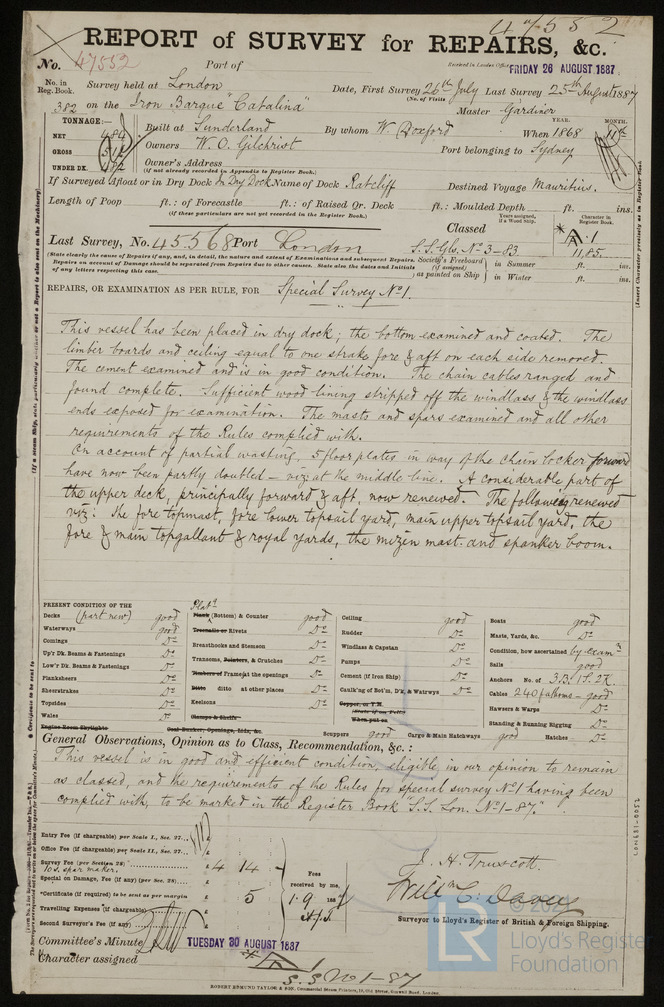 47552
REPORT of SURVEY for REPAIRS, &c.
No. 47552 Port of
Received in London Office FRIDAY 26 AUGUST 1887
No. in Reg. Book. Survey held at London Date, First Survey 26th July Last Survey 25th August 1887
(No. of Visits
382 on the Iron Barque "Catalina" Master Gardiner
TONNAGE:— YEAR. MONTH.
Built at Sunderland By whom W. Doxford When 1868 11th
NET 489
GROSS Owners W. O. Gilchrist Port belonging to Sydney
UNDER DK. Owner's Address
(if not already recorded in Appendix to Register Book.)
If Surveyed Afloat or in Dry Dock In Dry Dock Name of Dock Ratcliff Destined Voyage Mauritius.
Length of Poop ft.: of Forecastle ft.: of Raised Qr. Deck ft.: Moulded Depth ft. ins.
(if these particulars are not yet recorded in the Register Book.)
Classed Years assigned, if a Wood Ship. Character in Register Book.
Last Survey, No. 45568 Port London S.S. Gls. No 3-83 A.1 11,85
(State clearly the cause of Repairs if any, and, in detail, the nature and extent of Examinations and subsequent Repairs.
Repairs on account of Damage should be separated from Repairs due to other causes. State also the dates and Initials of any letters respecting this case.
Society's Freeboard (if assigned) as painted on Ship in Summer ft. ins.
in Winter ft. ins.
REPAIRS, OR EXAMINATION AS PER RULE, FOR Special Survey No 1.
This vessel has been placed in dry dock; the bottom examined and coated. The
limber boards and ceiling equal to one strake fore & aft on each side removed.
The cement examined and is in good condition. The chain cables ranged and
found complete. Sufficient wood lining stripped off the windlass & the windlass
ends exposed for examination. The masts and spars examined and all other
requirements of the Rules complied with.
On account of partial wasting, 5 floor plates in way of the chain locker forward
have now been partly doubled – viz at the middle line. A considerable part of
the upper deck, principally forward & aft, now renewed. The following renewed
viz: the fore topmast, fore lower topsail yard, main upper topsail yard, the
fore & main topgallant & royal yards, the mizen mast and spanker boom.
PRESENT CONDITION OF THE
Decks (part new) good
Waterways good
Comings Do
Up'r Dk. Beams & Fastenings Do
Low'r Dk. Beams & Fastenings
Planksheers Do
Sheerstrakes Do
Topsides Do
Wales Do
Engine Room Skylights
Plat'g
Plank (Bottom) & Counter good
Treenails or Rivets Do
Breasthooks and Stemson Do
Transoms, Pointers, & Crutches Do
Timbers of Frame, at the openings Do
Ditto ditto at other places Do
Keelsons Do
Clamps & Shelfs
Coal Bunker, Openings, Lids, &c.
Ceiling good
Rudder Do
Windlass & Capstan Do
Pumps Do
Cement (if Iron Ship) Do
Caulk'g of Bot'm, D'k, & Watrwys Do
Copper, or Y.M.
(State if on Felt)
When put on
Scuppers good Cargo & Main Hatchways good Hatches Do
Boats good
Masts, Yards, &c. Do
Condition, how ascertained by exam'n
Sails good
Anchors No. of 3B. 1S. 2K.
Cables 240 fathoms – good
Hawsers & Warps Do
Standing & Running Rigging Do
General Observations, Opinion as to Class, Recommendation, &c.:
This vessel is in good and efficient condition, eligible in our opinion to remain
as classed, and the requirements of the Rules for special survey No 1 having been
complied with, to be marked in the Register Book "S.S. Lon. No 1-87."
Entry Fee (if chargeable) per Scale I., Sec. 27...
Office Fee (if chargeable) per Scale II., Sec. 27...
Survey Fee (per Section 28) £ 4 14
Special on Damage, Fee (if any) (per Sec. 28)...
*Certificate (if required) to be sent as per margin 5
Travelling Expenses (if chargeable)
Second Surveyor's Fee (if any)
Fees received by me, 1.9 188
J. H. Truscott.
Willm C. Davey
Surveyor to Lloyd's Register of British & Foreign Shipping.
Committee's Minute TUESDAY 30 AUGUST 1887
Character assigned A 1
S.S No 1-87
ROBERT EDMUND TAYLOR & SON, Commercial Steam Printers, 19, Old Street, Goswell Road, London.
LR
Lloyd's Register
Foundation